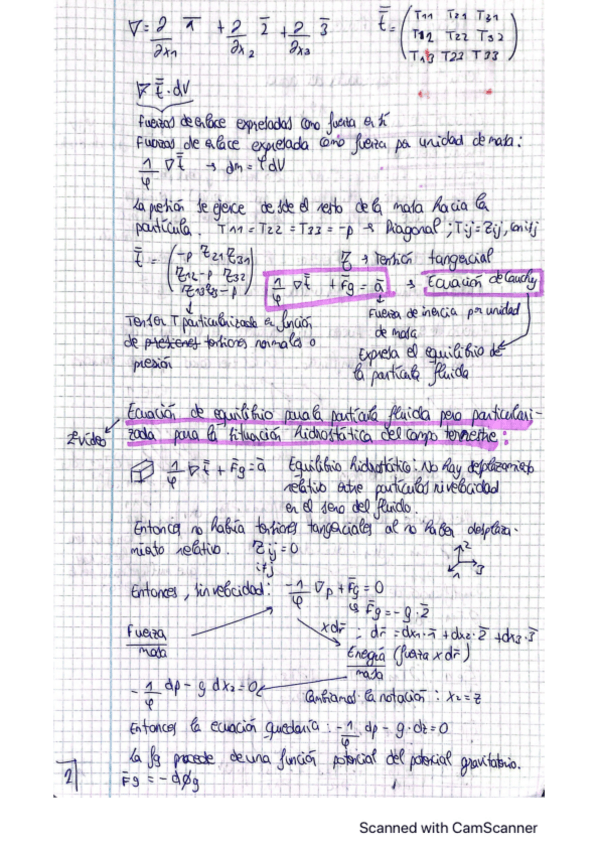 ∇ = ∂/∂x1 1̄ + ∂/∂x2 2̄ + ∂/∂x3 3̄
t̄ = (T11 T21 T31
T12 T22 T32
T13 T23 T33)
∇ t̄ · dV
Fuerzas de enlace expresadas como fuerza en sí
Fuerzas de enlace expresada como fuerza por unidad de masa:
1/φ ∇ t̄ → dm = φ dV
La presión se ejerce desde el resto de la masa hacia la
partícula. T11 = T22 = T33 = -p → Diagonal; Tij = Zij, con i≠j
t̄ = (-p Z21 Z31
Z12 -p Z32
Z13 Z23 -p)
Z → Tensión tangencial
1/φ ∇ t̄ + F̄g = ā → Ecuación de Cauchy
Tensor T particularizado en función
de presiones tensiones normales o
presión
Fuerza de inercia por unidad
de masa
Expresa el equilibrio de
la partícula fluida
Ecuación de equilibrio para la partícula fluida pero particulari-
zada para la situación hidrostática del campo terrestre:
2 vídeo
1/φ ∇ t̄ + F̄g = ā
Equilibrio hidrostático: No hay desplazamiento
relativo entre partículas ni velocidad
en el seno del fluido.
Entonces no había tensiones tangenciales al no haber desplaza-
miento relativo. Zij = 0
i≠j
2
1 3
Entonces, sin velocidad: -1/φ ∇p + F̄g = 0
↳ F̄g = -g · 2̄
Fuerza/masa
x dr̄ : dr̄ = dx1 · 1̄ + dx2 · 2̄ + dx3 · 3̄
Energía (fuerza x dr̄)/masa
-1/φ dp - g dx2 = 0
Cambiamos la notación: x2 = z
Entonces la ecuación quedaría: -1/φ dp - g · dz = 0
La fg procede de una función potencial del potencial gravitatorio.
F̄g = -dϕg
2
Scanned with CamScanner